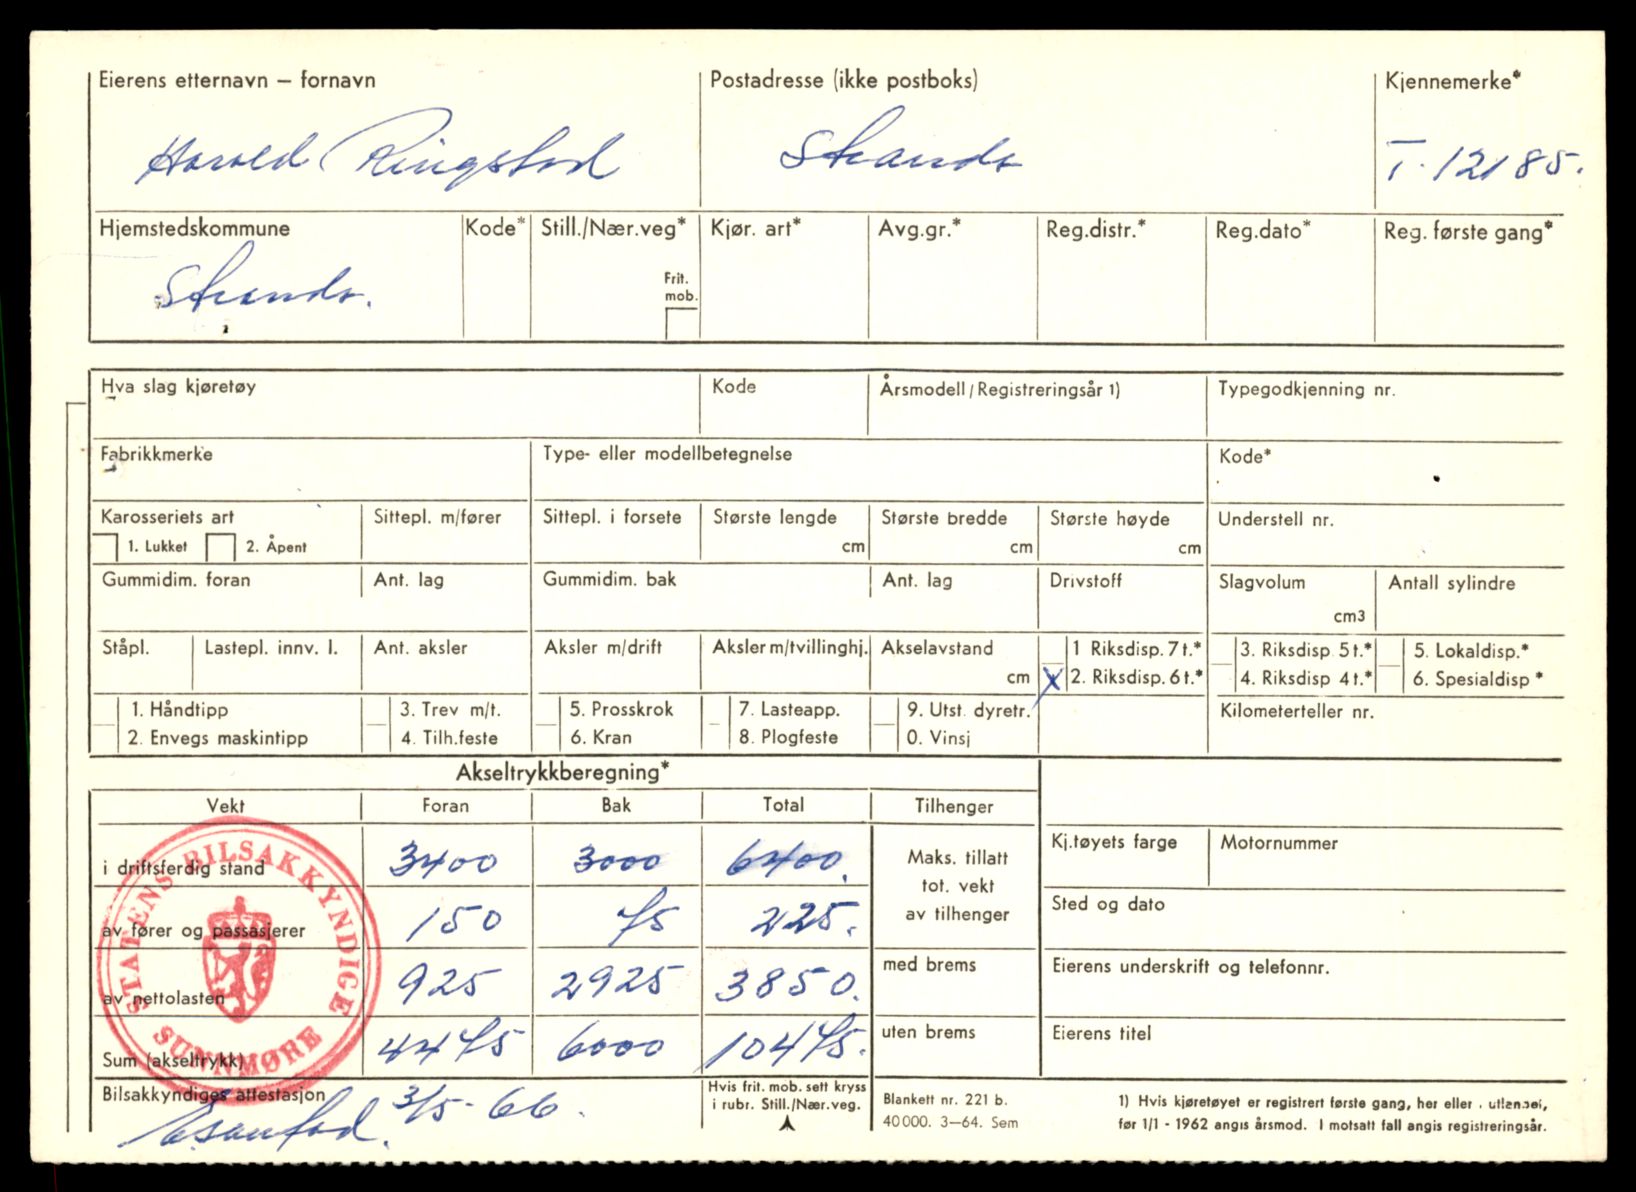 Eierens etternavn – fornavn Postadresse (ikke postboks) Kjennemerke*
Harald Ringstad Stranda T-12185.
Hjemstedskommune Kode* Still./Nær.veg* Kjør. art* Avg.gr.* Reg.distr.* Reg.dato* Reg. første gang*
Stranda. Frit. mob.
Hva slag kjøretøy Kode Årsmodell/Registreringsår 1) Typegodkjenning nr.
Fabrikkmerke Type- eller modellbetegnelse Kode*
Karosseriets art Sittepl. m/fører Sittepl. i forsete Største lengde Største bredde Største høyde Understell nr.
1. Lukket 2. Åpent cm cm cm
Gummidim. foran Ant. lag Gummidim. bak Ant. lag Drivstoff Slagvolum Antall sylindre
cm3
Ståpl. Lastepl. innv. l. Ant. aksler Aksler m/drift Aksler m/tvillinghj. Akselavstand 1 Riksdisp. 7 t.* 3. Riksdisp. 5 t.* 5. Lokaldisp.*
cm X 2. Riksdisp. 6 t.* 4. Riksdisp 4 t.* 6. Spesialdisp*
1. Håndtipp 3. Trev m/t. 5. Prosskrok 7. Lasteapp. 9. Utst. dyretr. Kilometerteller nr.
2. Envegs maskintipp 4. Tilh.feste 6. Kran 8. Plogfeste 0. Vinsj
Akseltrykkberegning*
Vekt Foran Bak Total Tilhenger
i driftsferdig stand 3400 3000 6400. Maks. tillatt tot. vekt av tilhenger Kj.tøyets farge Motornummer
av fører og passasjerer 150 75 225. Sted og dato
av nettolasten 925 2925 3850. med brems Eierens underskrift og telefonnr.
Sum (akseltrykk) 4475 6000 10475. uten brems Eierens titel
STATENS BILSAKKYNDIGE
SUNNMØRE
Bilsakkyndiges attestasjon 3/5-66. Hvis frit. mob. sett kryss i rubr. Still./Nær.veg.
Blankett nr. 221 b.
40 000. 3–64. Sem
1) Hvis kjøretøyet er registrert første gang, her eller i utlandet,
før 1/1 - 1962 angis årsmod. I motsatt fall angis registreringsår.